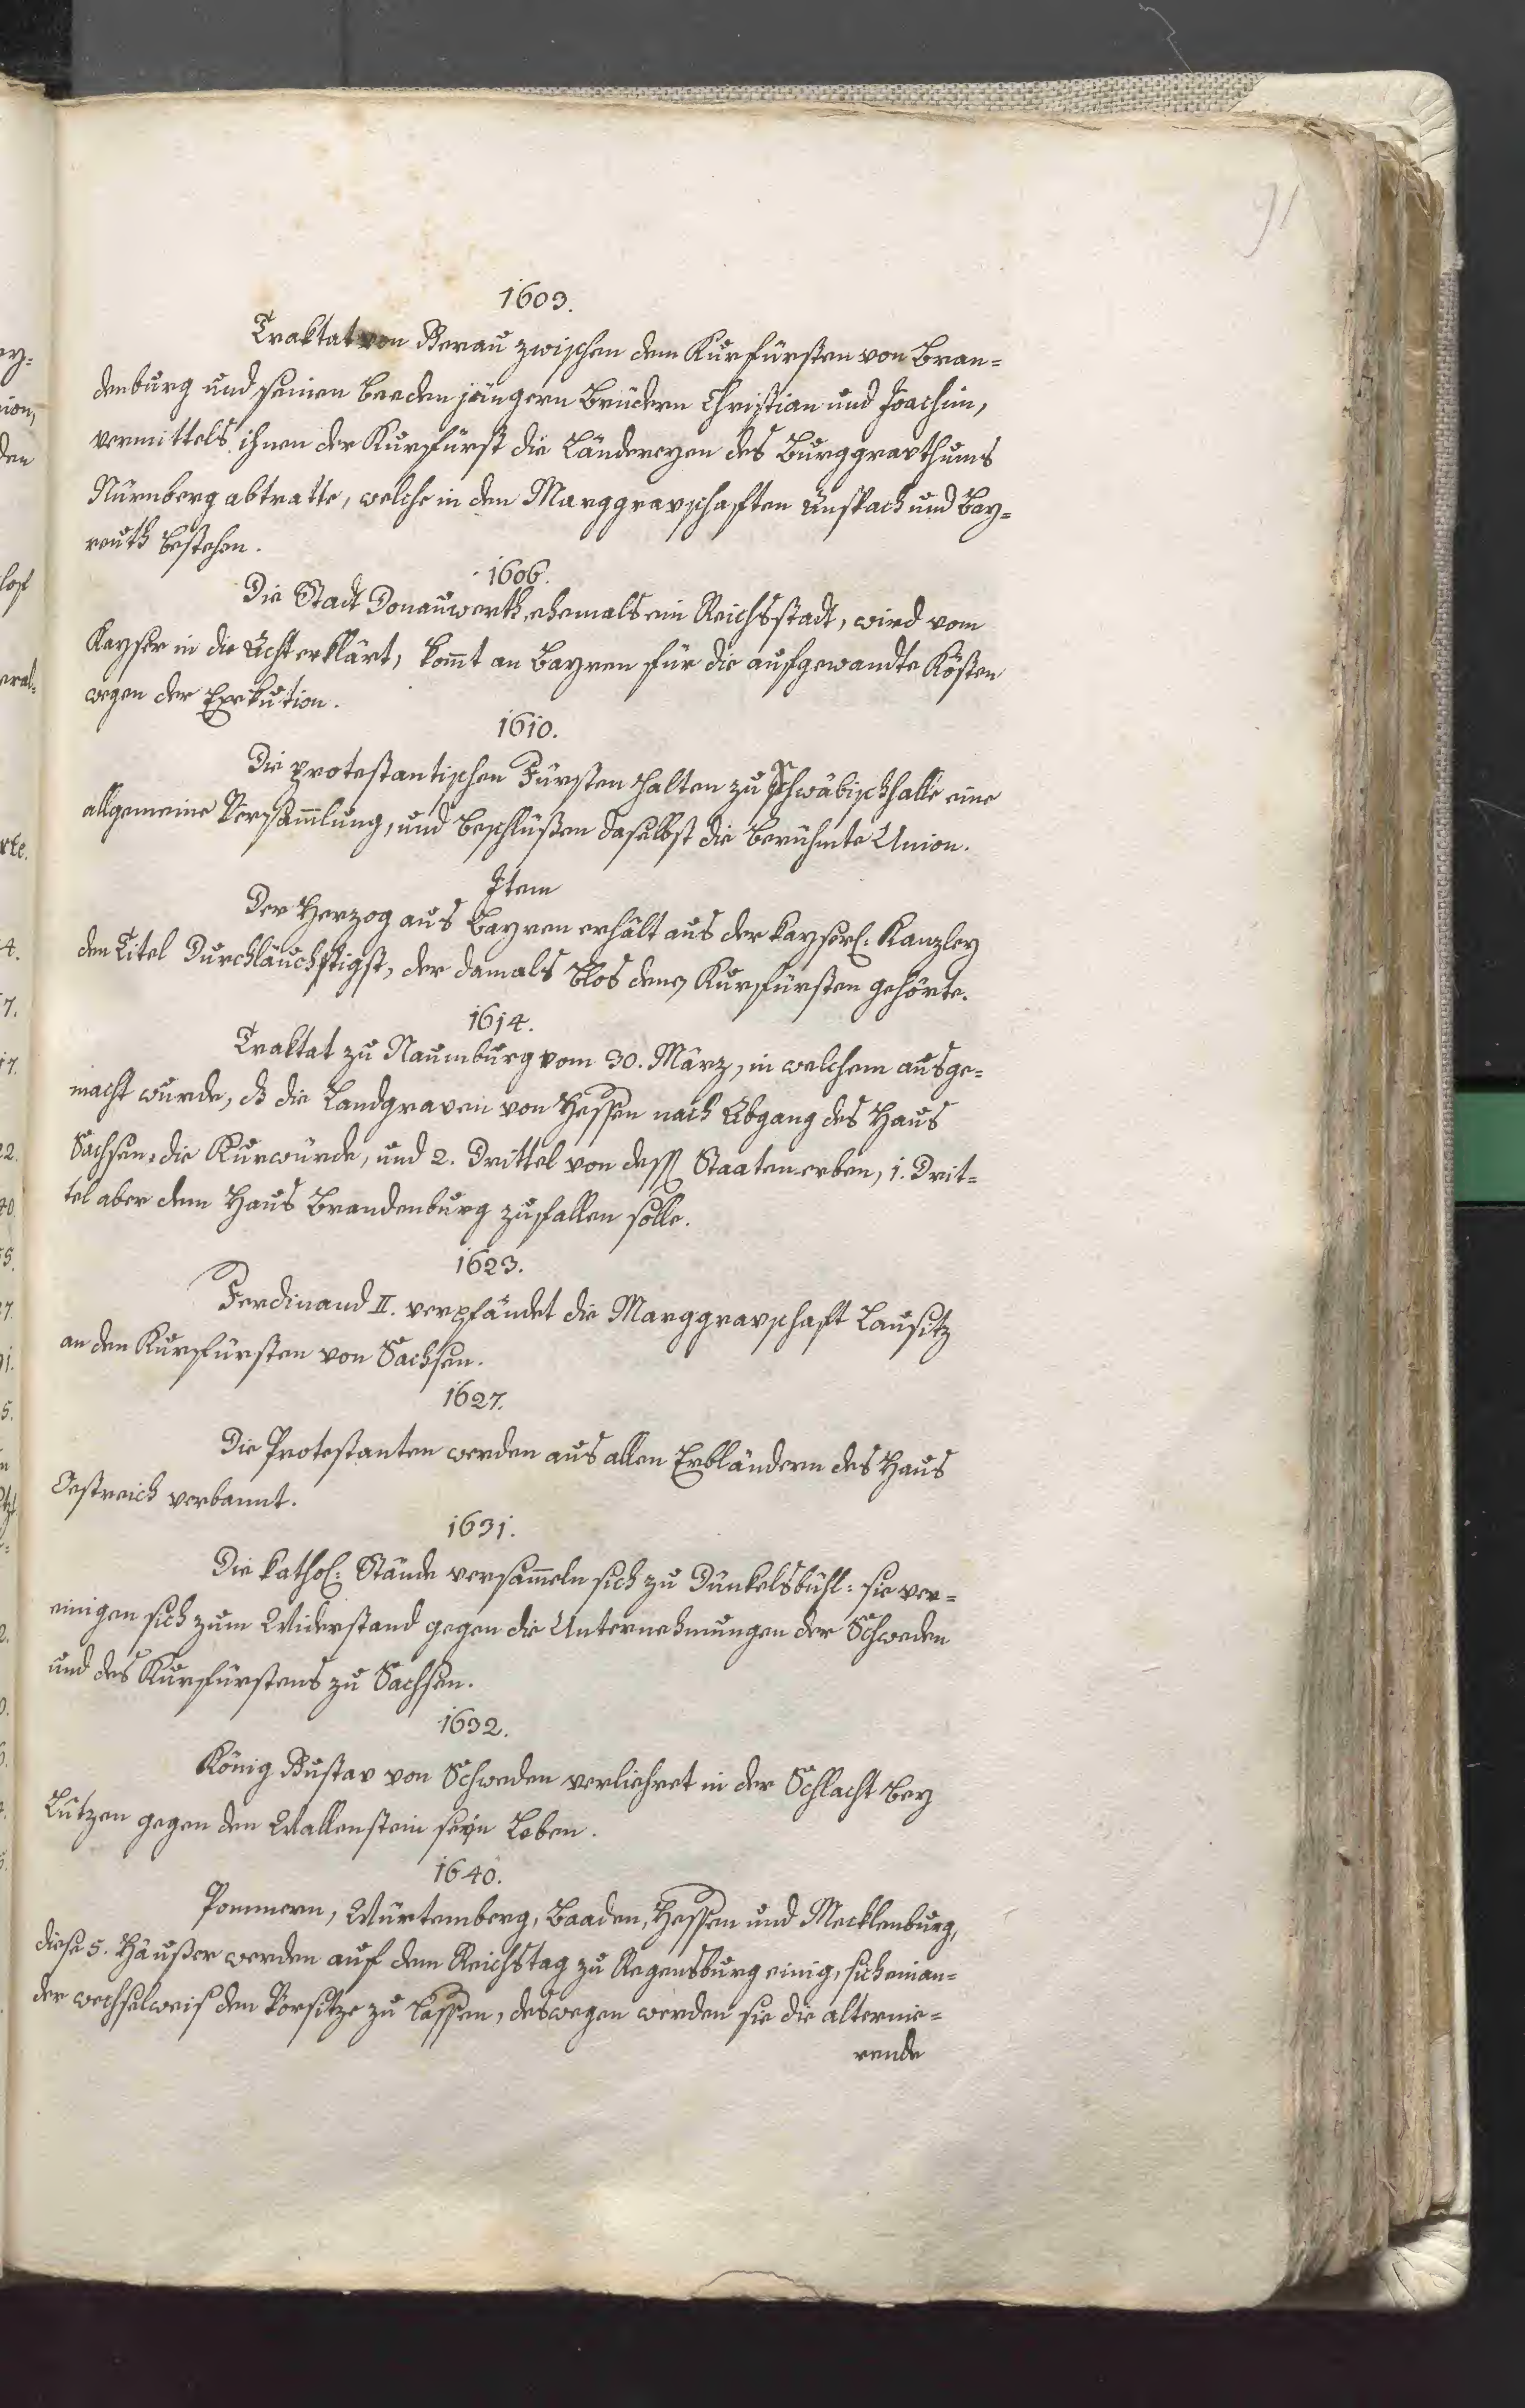 91
1603.
Traktat von Gerau zwischen dem Kurfürsten von Bran=
denburg und seinen beeden jüngern Brüdern Christian und Joachim,
vermittels ihnen der Kurfürst die Ländereyen des Burggravthums
Nürnberg abtratte, welche in den Marggravschaften Anspach und Bay=
reuth bestehen.
1606.
Die Stadt Donauwerth, ehemals ein Reichsstadt, wird vom
Kayser in die Acht erklärt, kom̄t an Bayren für die aufgewandte Kösten
wegen der Exekution.
1610.
Die protestantischen Fürsten halten zu Schwäbischhalle eine
allgemeine Versam̄lung, und beschlüßen daselbst die berühmte Union.
Item
Der Herzog aus Bayren erhält aus der kayserl: Kanzley
den Titel Durchläuchstigst, der damals blos denen Kurfürsten gehörte.
1614.
Traktat zu Naumburg vom 30. März, in welchem ausge=
macht wurde, dß die Landgraven von Hessen nach Abgang des Haus
Sachsen, die Kurwürde, und 2. Drittel von dessen Staaten erben, 1. Drit=
tel aber dem Haus Brandenburg zufallen solle.
1623.
Ferdinand II. verpfändet die Marggravschaft Lausitz
an den Kurfürsten von Sachsen.
1627.
Die Protestanten werden aus allen Erbländern des Haus
Oestreich verbannt.
1631.
Die kathol: Stände versam̄eln sich zu Dünkelsbühl: sie ver=
einigen sich zum Widerstand gegen die Unternehmungen der Schweden
und des Kurfürstens zu Sachsen.
1632.
König Gustav von Schweden verliehret in der Schlacht bey
Lützen gegen den Wallenstein seyn Leben.
1640.
Pommern, Würtemberg, Baaden, Hessen und Mecklenburg,
diese 5. Häußer werden auf dem Reichstag zu Regensburg einig, sich einan=
der wechselweis den Vorsitze zu lassen, deswegen werden sie die alternie=
rende